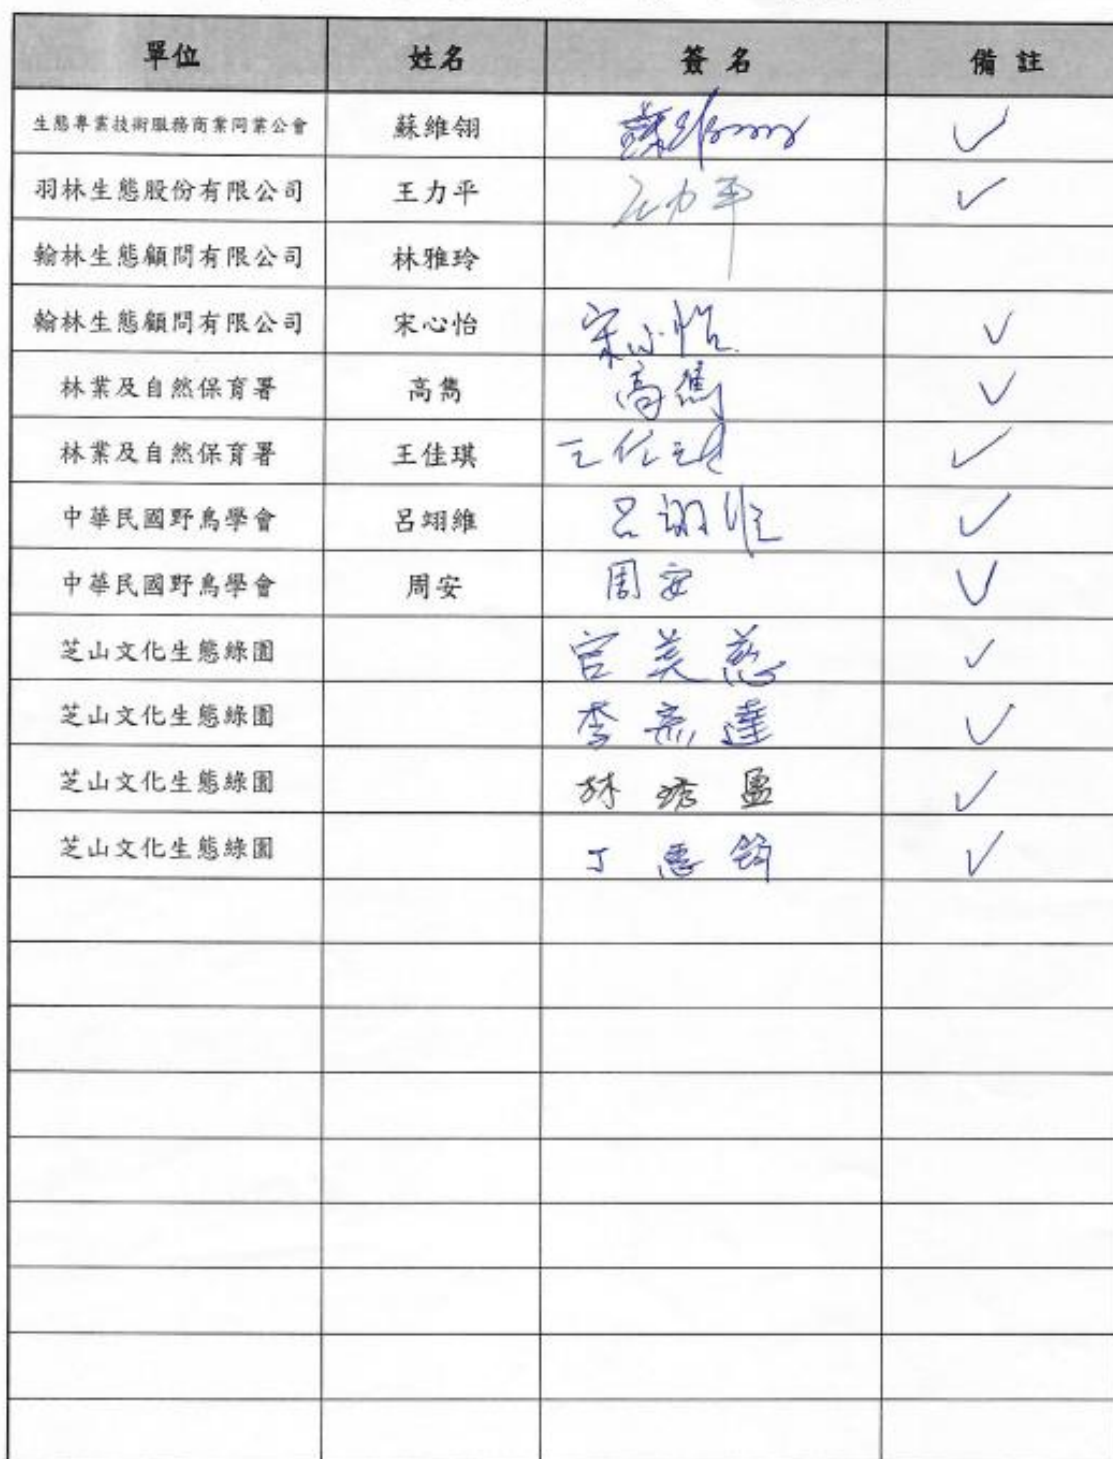 單位 姓名 簽名 備註
生態專業技術服務商業同業公會 蘇維翎 ✓
羽林生態股份有限公司 王力平 王力平 ✓
翰林生態顧問有限公司 林雅玲
翰林生態顧問有限公司 宋心怡 宋心怡 ✓
林業及自然保育署 高雋 高雋 ✓
林業及自然保育署 王佳琪 王佳琪 ✓
中華民國野鳥學會 呂翊維 呂翊維 ✓
中華民國野鳥學會 周安 周安 ✓
芝山文化生態綠園 官美慈 ✓
芝山文化生態綠園 李 達 ✓
芝山文化生態綠園 林 盈 ✓
芝山文化生態綠園 丁惠 ✓